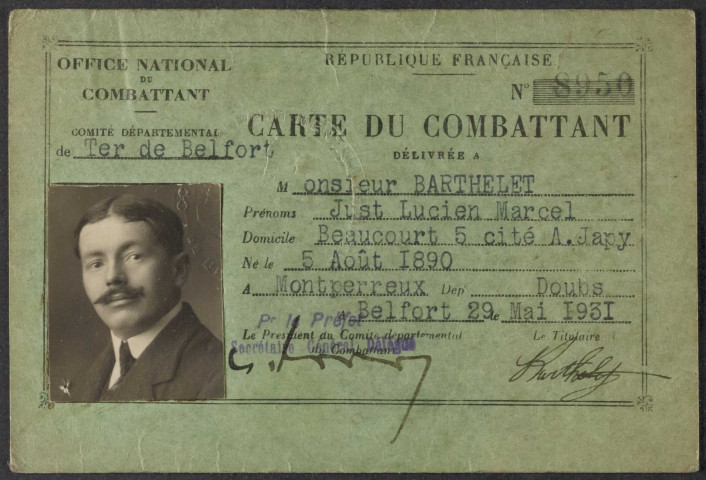 OFFICE NATIONAL
DU
COMBATTANT
COMITÉ DÉPARTEMENTAL
de Ter de Belfort
RÉPUBLIQUE FRANÇAISE
N° 8950
CARTE DU COMBATTANT
DÉLIVRÉE A
M onsieur BARTHELET
Prénoms Just Lucien Marcel
Domicile Beaucourt 5 cité A.Japy
Né le 5 Août I890
A Montperreux Dep Doubs
A Belfort 29 le Mai I93I
Pr le Préfet
Le Président du Comité départemental
Secrétaire Général Délégué
du Combattant
Le Titulaire
Barthelet